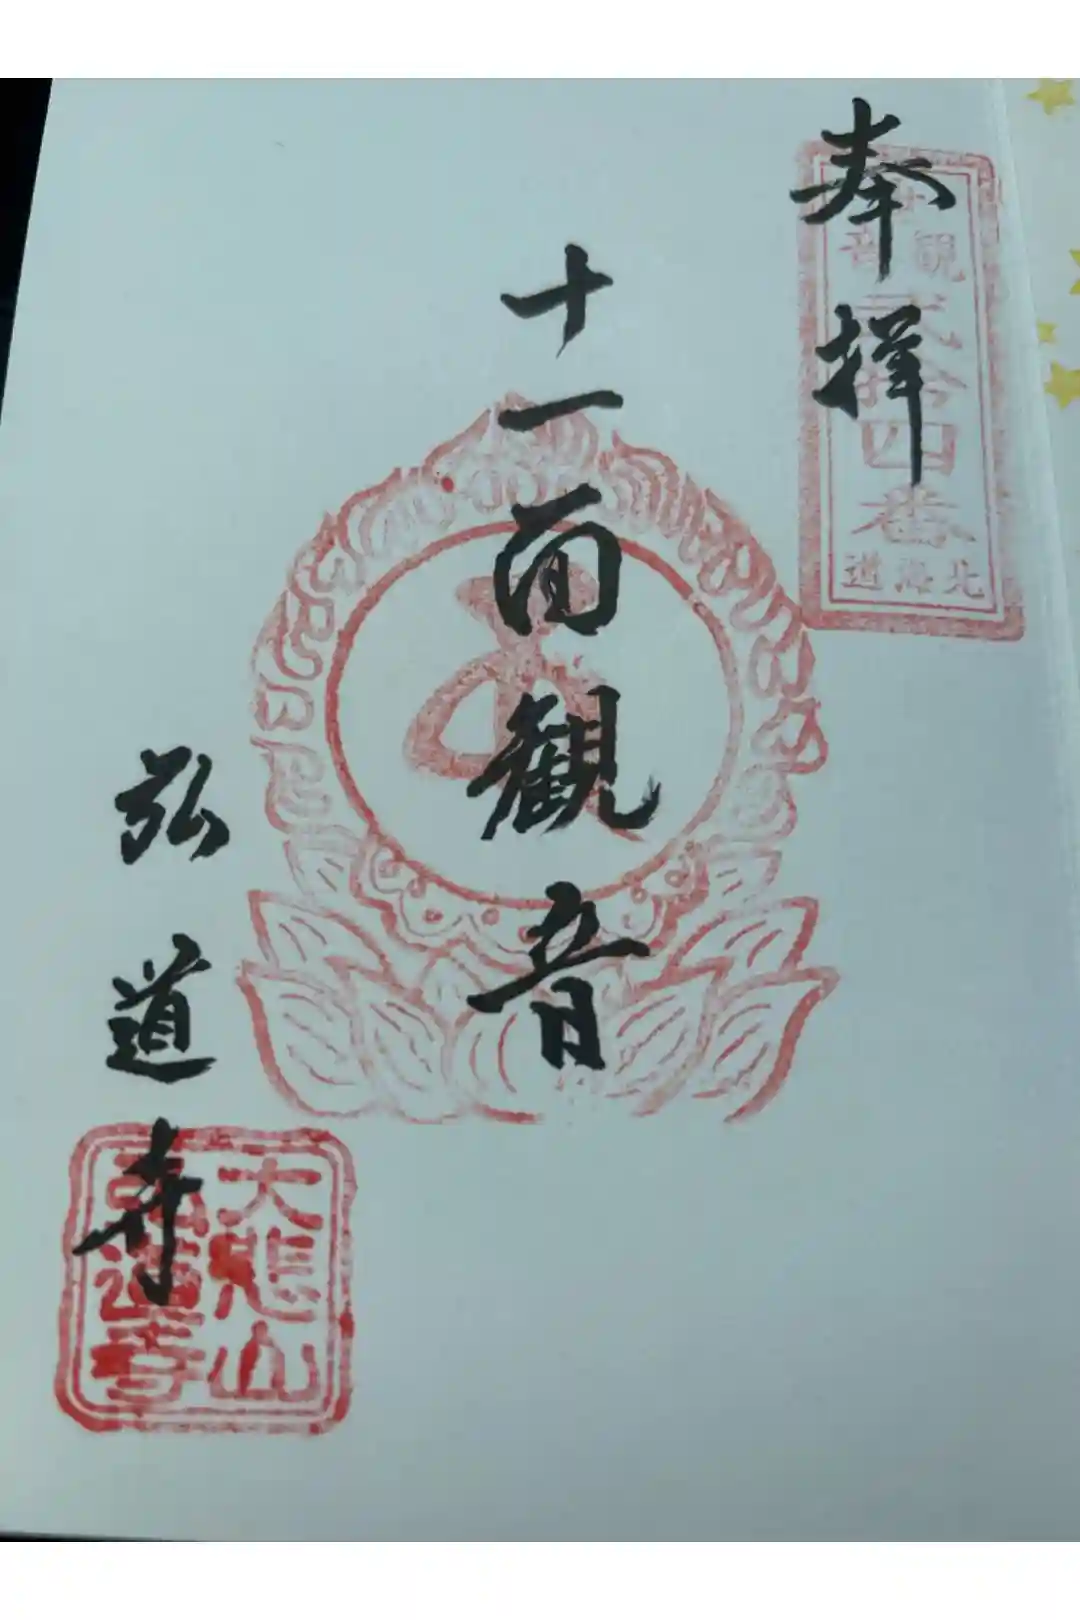 奉拝
観音
弐拾四番
北海道
十一面観音
弘道寺
大悲山
弘道寺